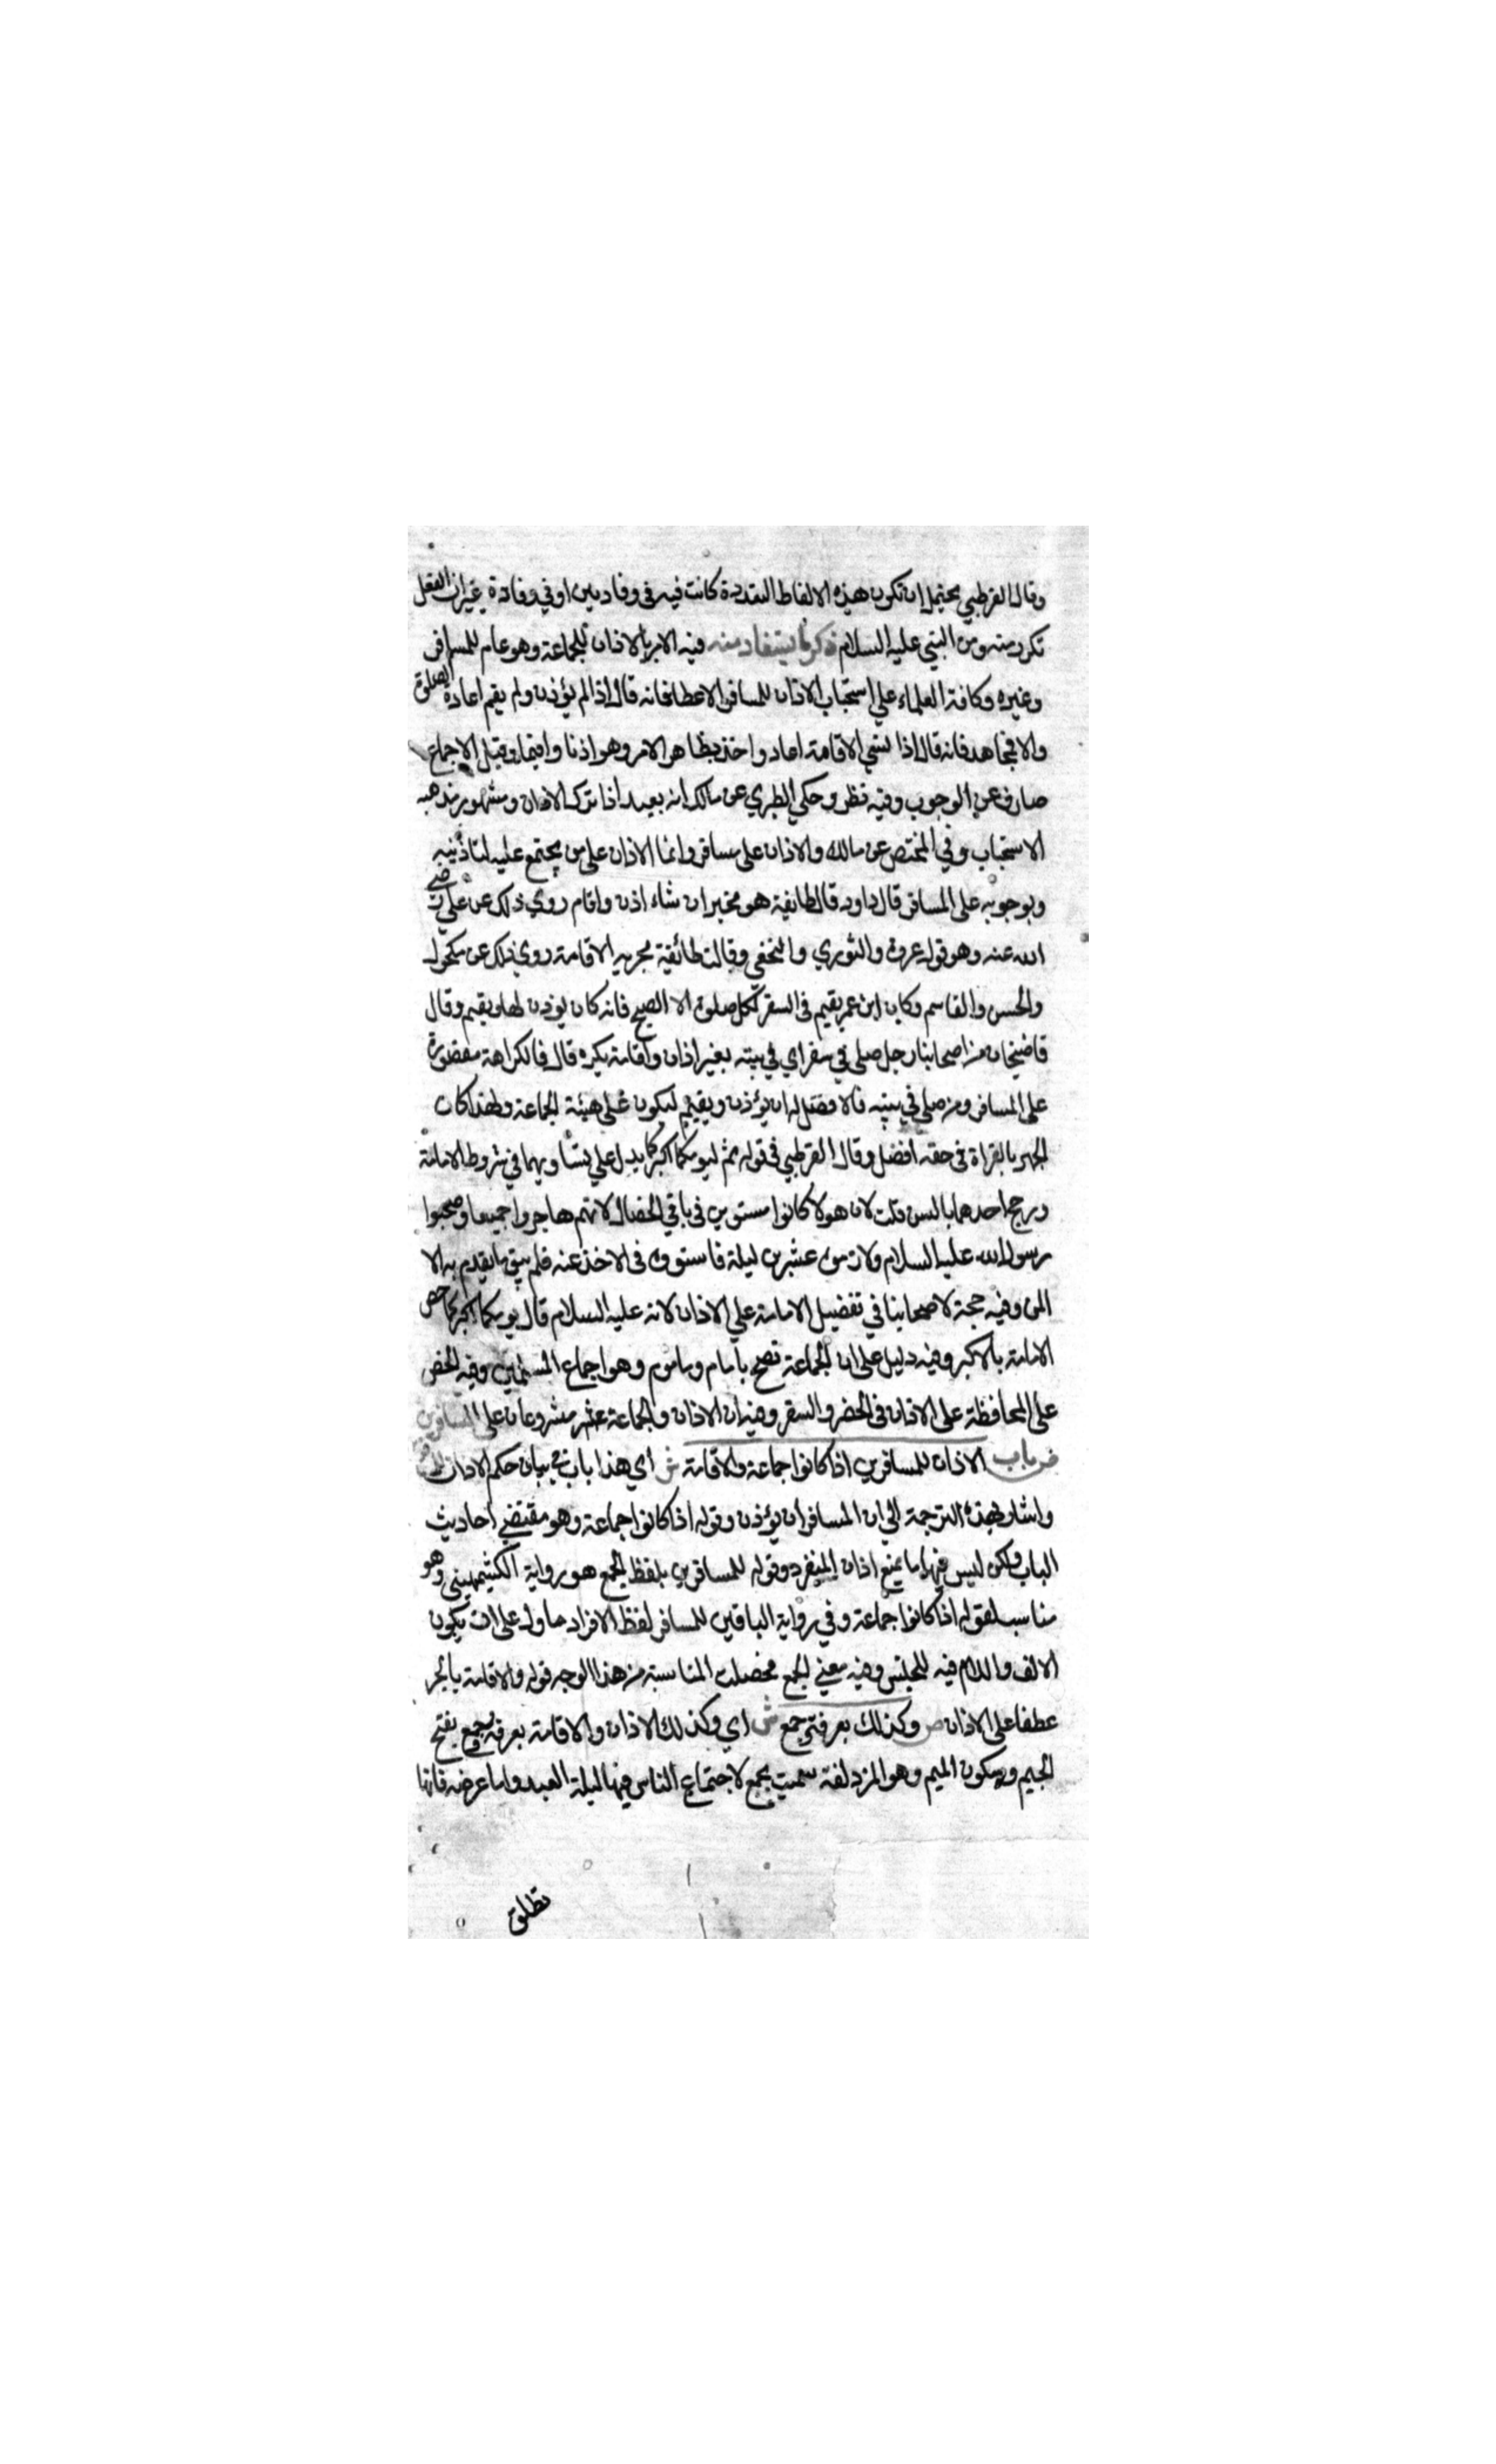 وقال القرطبي يحتمل ان تكون هذه الالفاظ المتعددة كانت فيه في وفادتين او في وفادة غير ان النقل
تكرر منه ومن النبي عليه السلام ذكر ما يستفاد منه فيه الامر بالاذان للجماعة وهو عام للمسافر
وغيره وكافة العلماء علي استحباب الاذان للمسافر الا عطا فانه قال اذا لم يؤذن ولم يقم اعادة الصلوة
والا مجاهد فانه قال اذا نسي الاقامة اعاد واخذ بظاهر الامر وهو اذنا واقيما وقيل الاجماع
صارف عن الوجوب وفيه نظر وحكي الطبري عن مالك انه يعيد اذا ترك الاذان ومشهور مذهبه
الاستحباب وفي المختصر عن مالك ولا اذان علي مسافر وانما الاذان علي من يجتمع عليه لتاذينه
وبوجوبه علي المسافر قال داود قال طايفة هو مخير ان شاء اذن واقام روي ذلك عن علي رضي
الله عنه وهو قول عروة والثوري والنخعي وقالت طائفة تجزيه الاقامة روي ذلك عن مكحول
والحسن والقاسم وكان ابن عمر يقيم في السفر لكل صلوة الا الصبح فانه كان يوذن لها ويقيم وقال
قاضيخان من اصحابنا رجل صلي في سفر اي في بيته بغير اذان واقامة يكره قال فالكراهة مقصورة
علي المسافر ومن صلي في بيته فالافضل له ان يؤذن ويقيم ليكون علي هيئة الجماعة ولهذا كان
الجهر بالقراة في حقه افضل وقال القرطبي في قوله ثم ليومكما اكبركما يدل علي تساويهما في شروط الامامة
ورجح احدهما بالسن قلت لان هولا كانوا مستوين في باقي الخصال لانهم هاجروا جميعا وصحبوا
رسول الله عليه السلام ولازموه عشرين ليلة فاستووا في الاخذ عنه فلم يبق ما يقدم به الا
السن وفيه حجة لاصحابنا في تفضيل الامامة علي الاذان لانه عليه السلام قال يومكما اكبركما خص
الامامة بالاكبر وفيه دليل علي ان الجماعة تصح بامام وماموم وهو اجماع المسلمين وفيه الحض
علي المحافظة علي الاذان في الحضر والسفر وفيه ان الاذان والجماعة مشروعان علي المسافرين
ص باب الاذان للمسافرين اذا كانوا جماعة والاقامة ش اي هذا باب في بيان حكم الاذان للمسافرين
واشار بهذه الترجمة الي ان المسافر ان يؤذن وقوله اذا كانوا جماعة وهو مقتضي احاديث
الباب ولكن ليس فيها ما يمنع اذان المنفرد وقوله للمسافرين بلفظ الجمع هو رواية الكشميهني وهو
مناسب لقوله اذا كانوا جماعة وفي رواية الباقين للمسافر لفظ الافراد ماول علي ان يكون
الالف واللام فيه للجنس وفيه معني الجمع فحصلت المناسبة من هذا الوجه قوله والاقامة بالجر
عطفا علي الاذان ص وكذلك بعرفة وجمع ش اي وكذلك الاذان والاقامة بعرفة وجمع بفتح
الجيم وسكون الميم وهو المزدلفة سميت بجمع لاجتماع الناس فيها ليلة العيد واما عرفه فانها
تطلق